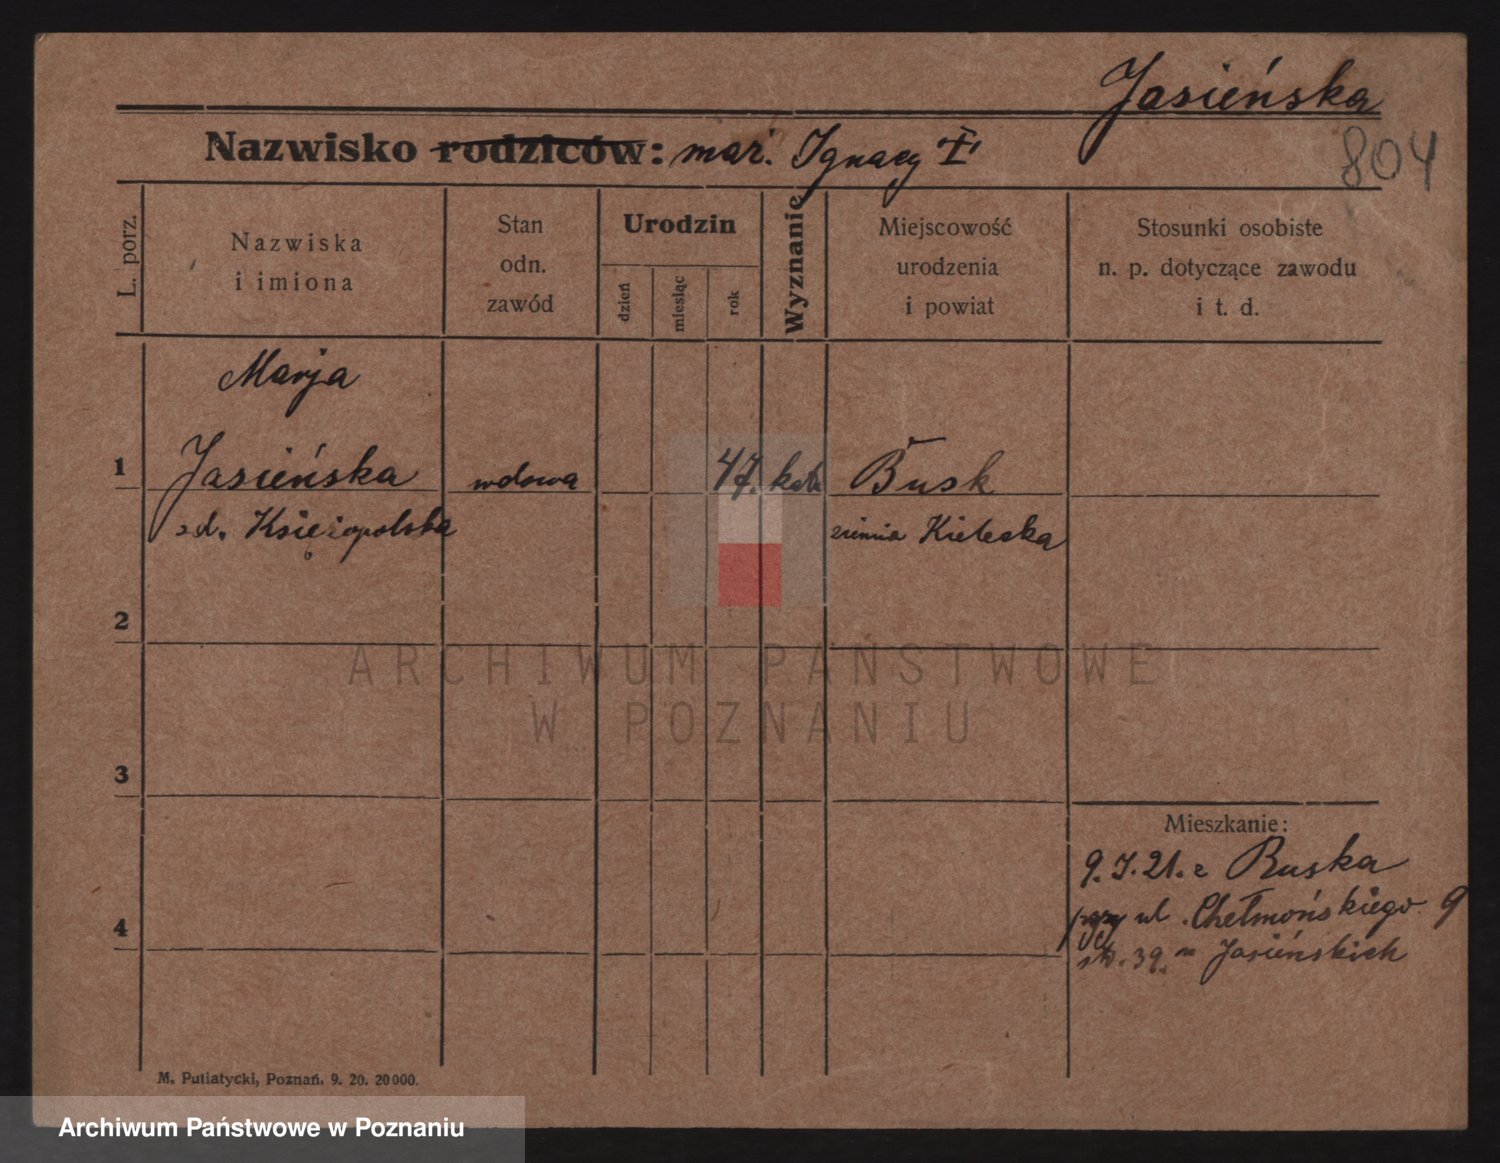 Jasieńska
Nazwisko rodziców: mar. Ignacy
804
L. porz.
Nazwiska
i imiona
Stan
odn.
zawód
Urodzin
dzień
miesiąc
rok
Wyznanie
Miejscowość
urodzenia
i powiat
Stosunki osobiste
n. p. dotyczące zawodu
i t. d.
Marja
1 Jasieńska wdowa 47. kat. Busk
zd. Księżopolska ziemia Kielecka
2
3
4
Mieszkanie:
9.I.21. z Buska
przy ul. Chełmońskiego 9
39. Jasieńskich
M. Putiatycki, Poznań. 9. 20. 20000.
ARCHIWUM PAŃSTWOWE
W POZNANIU
Archiwum Państwowe w Poznaniu